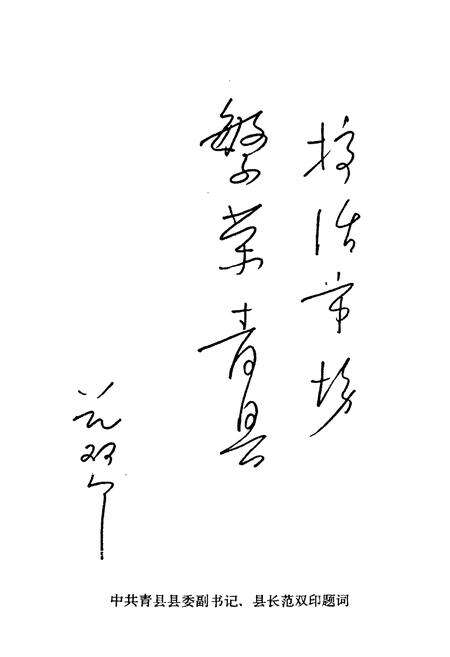 搞活市场
繁荣青县
范双印
中共青县县委副书记、县长范双印题词